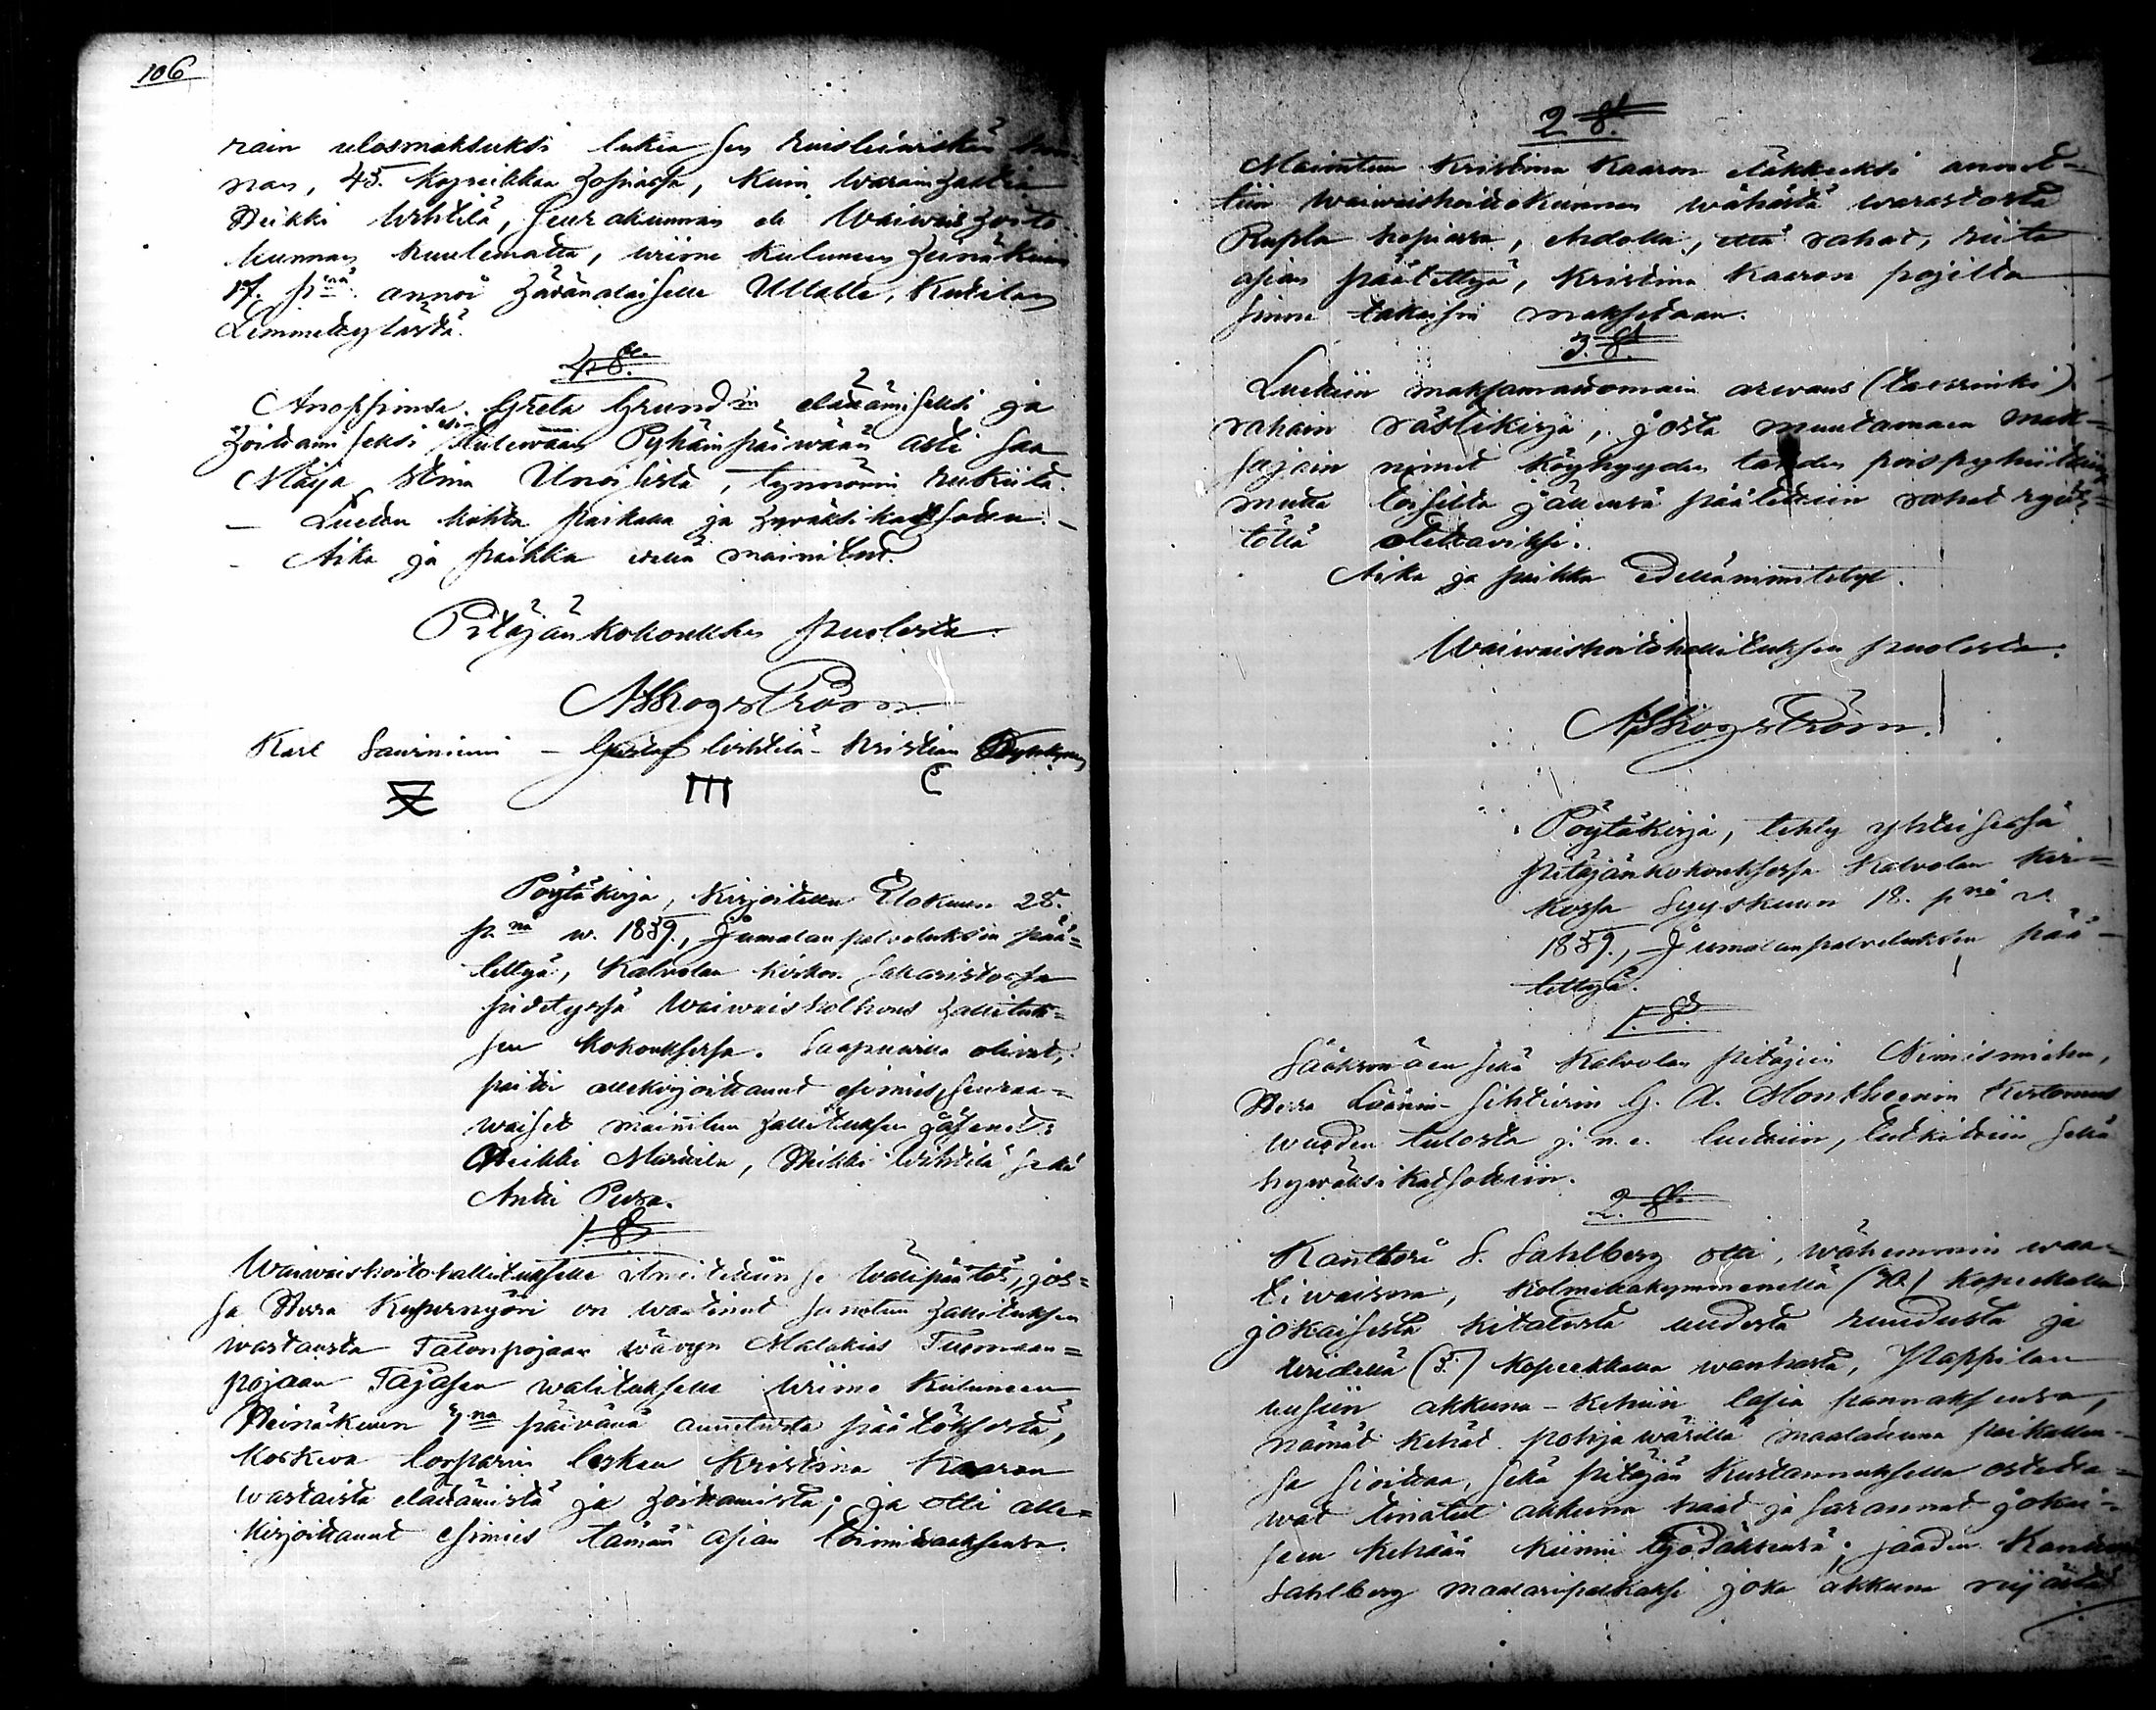 106
rain ulosmaksuksi lukea sen ruisleiwiskän hin-
nan, 45. Kopeikkaa Hopiassa, kuin Warainhaltia
Heikki Wihtilä, Seurakunnan eli Waiwaishoito
kunnan kuulematta, wiime kuluneen Heinäkuun
17. p:nä annoi Hädänalaiselle Ullalle, Kutilan
Lemmetkylästä.
4. §.
Anoppinsa Greta Grundin elättämiseksi ja
Hoitamiseksi ensi tulewaan Pyhäinpäiwään asti saa
Maija Stina Unoisista, tynnörin Rukiita.
– Luettu kohta paikalla ja Hywäksi katsottu. –
– Aika ja paikka wielä mainitut.
Pitäjänkokouksen puolesta.
A Skogström
Karl Sauriniemi – Gustaf Wihtilä – Kristian
III
Pöytäkirja, Kirjoitettu Elokuun 28.
p:nä w. 1859, Jumalanpalveluksen pää-
tettyä, Kalvolan kirkon Sakaristossa
pidetyssä Waiwaisholhous Hallituk-
sen kokouksessa. Saapuwilla oliwat,
paitsi allekirjoittanut esimies, seuraa-
waiset mainitun Hallituksen jäsenet:
Heikki Mustila, Heikki Wihtilä sekä
Antti Pura.
1. §.
Waiwaishoitohallitukselle ilmoitettiin se wälipäätös, jos-
sa Herra Kuvernyöri on waatinut sanotun Hallituksen
wastausta Talonpojan wävyn Malakias Tuomaan-
pojan Tajasen walitukselle wiime kuluneen
Heinäkuun 7:na päivänä annetusta päätöksestä,
koskeva looparin lesken Kristina Kaaron
wastaista elättämistä ja Hoitamista; ja otti alle-
kirjoittanut esimies tämän asian toimittaaksensa.
2. §.
Mainitun Kristina Kaaron eläkkeeksi annet-
tiin Waiwaishoitokunnan wähästä warastosta
Rupla hopiassa, ehdolla, että rahat, riita
asian päätettyä, Kristina Kaaron pojilta
sinne takaisin maksetaan.
3. §.
Luettiin maksamattomain arwaus (taxerinki)
rahain rästikirja, josta muutamain mak-
sajain nimet köyhyyden tähden poispyhittiin,
mutta toisilta jällensä päätettiin rahat ryös-
töllä otettaviksi.
Aika ja paikka edellänimitetyt.
Waiwaishoitohallituksen puolesta.
A Skogström.
Pöytäkirja, tehty yhteisessä
pitäjänkokouksessa Kalvolan kir-
kossa Syyskuun 18. p:nä v.
1859, Jumalanpalveluksen pää-
tettyä.
1. §.
Sääksmäen sekä Kalvolan pitäjien Nimismiehen,
Herra Läänin-Sihtierin G. A. Montheenin Kertomus
wuoden tulosta j. n. e. luettiin, tutkittiin sekä
hywäksi katsottiin.
2. §.
Kanttori S. Sahlberg otti, wähemmin waa-
tiwaisna, kolmellakymmenellä (30.) kopeekalla
jokaisesta kitatusta uudesta ruudusta ja
wiidellä (5.) kopeekkalla wanhasta, Pappilan
uusiin akkuna-kehiin lasia pannaksensa,
nämät kehät pohja wärillä maalattuna paikallen-
sa sioittaa, sekä pitäjän kustannuksella ostetta-
wat tinatut akkuna haat ja sarannat jokai-
seen kehään kiinni lyödäksensä; jaaden Kanttori
Sahlberg maalaripalkaksi joka akkuna